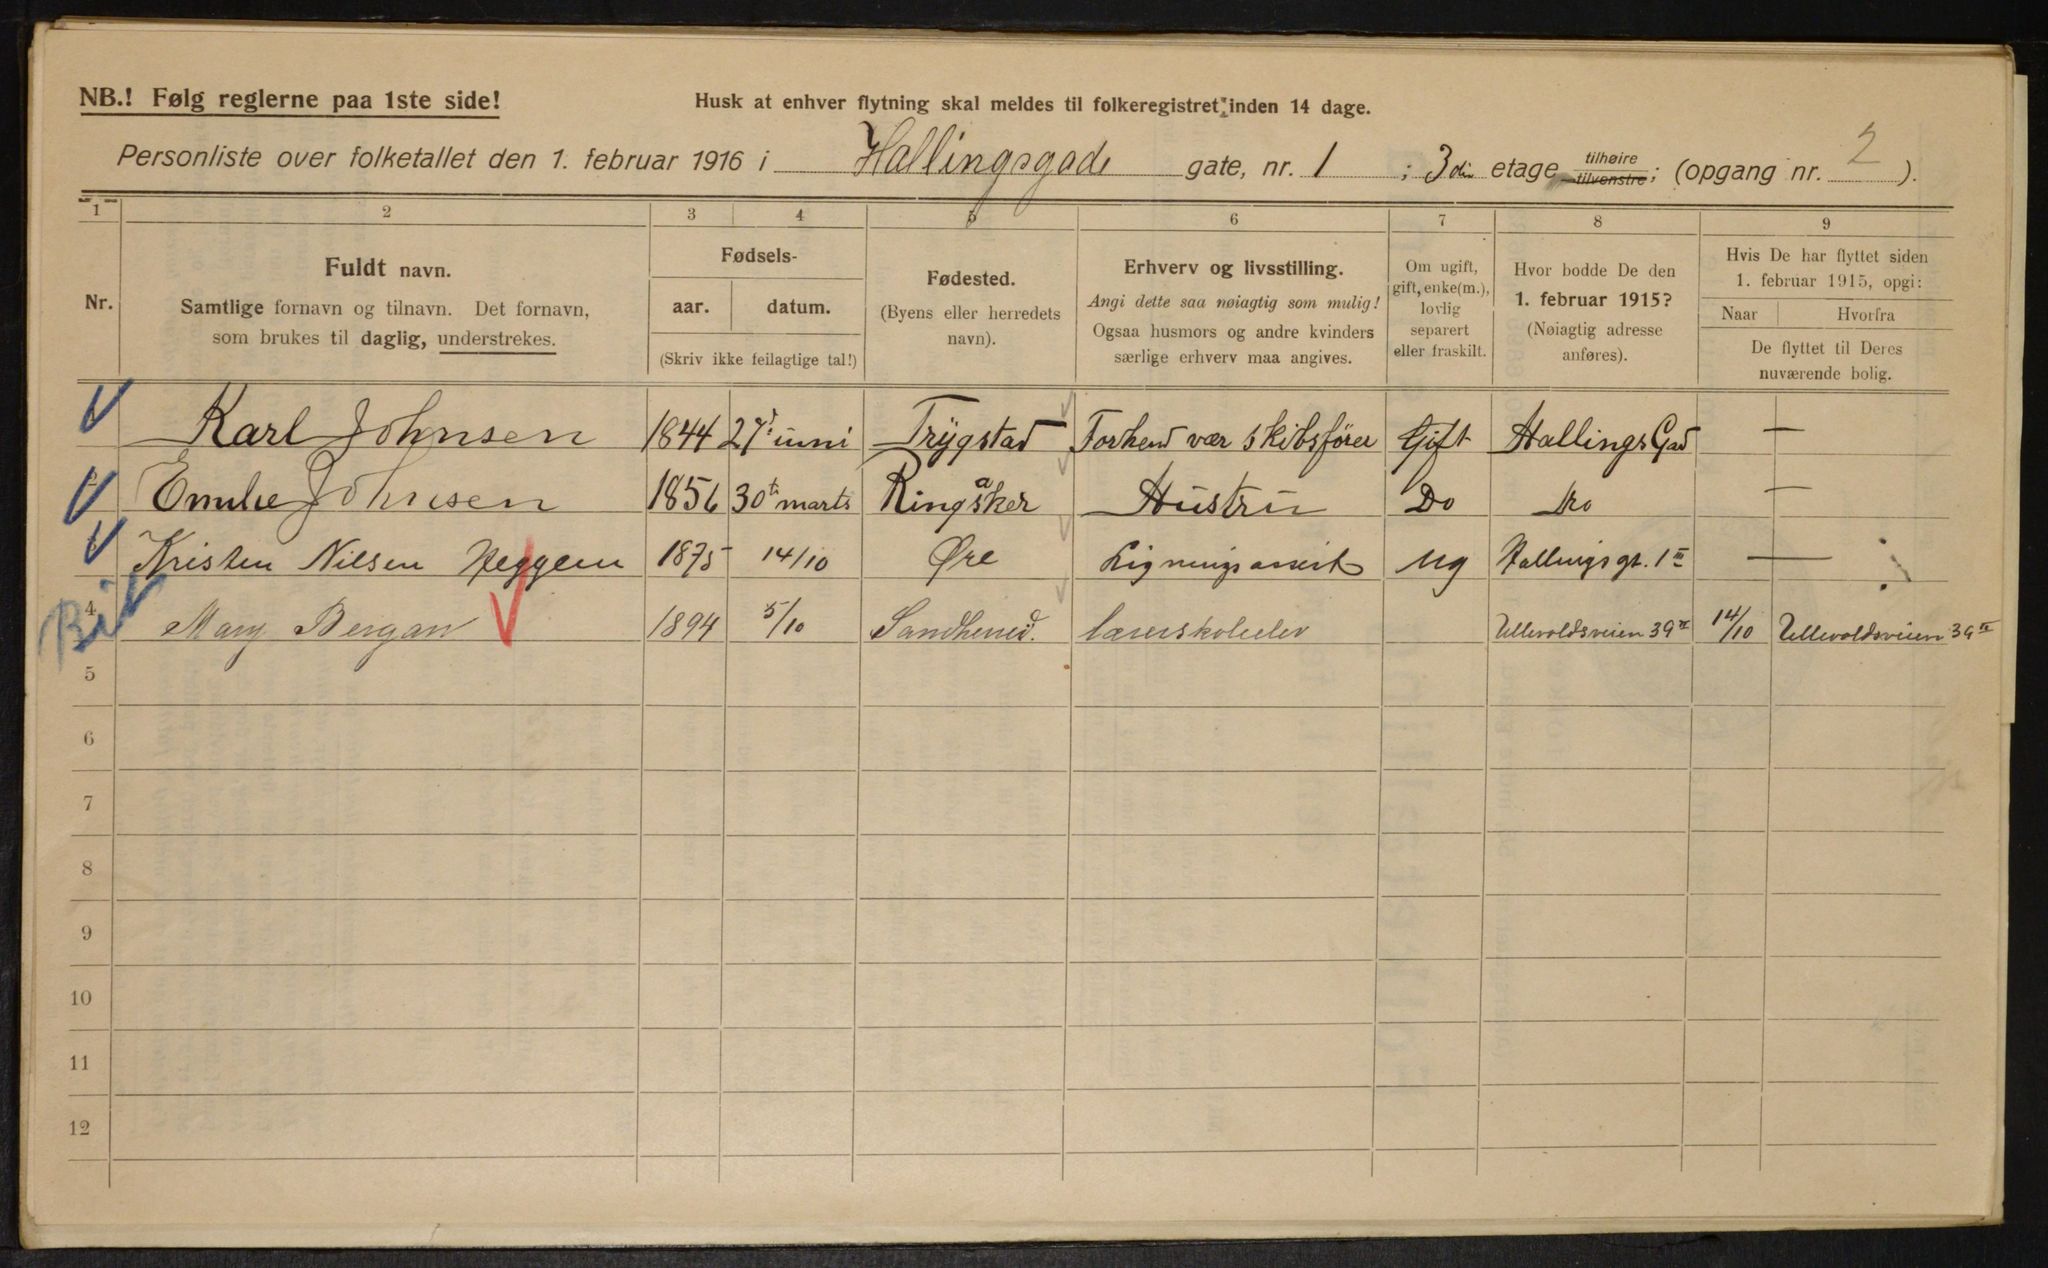 NB.! Følg reglerne paa 1ste side!
Husk at enhver flytning skal meldes til folkeregistret inden 14 dage.
Personliste over folketallet den 1. februar 1916 i Hallingsgade gate, nr. 1 ; 3die etage tilhøire tilvenstre; (opgang nr. 2 ).
1 2 3 4 5 6 7 8 9
Nr.
Fuldt navn.
Samtlige fornavn og tilnavn. Det fornavn,
som brukes til daglig, understrekes.
Fødsels-
aar. datum.
(Skriv ikke feilagtige tal!)
Fødested.
(Byens eller herredets
navn).
Erhverv og livsstilling.
Angi dette saa nøiagtig som mulig!
Ogsaa husmors og andre kvinders
særlige erhverv maa angives.
Om ugift,
gift, enke(m.),
lovlig
separert
eller fraskilt.
Hvor bodde De den
1. februar 1915?
(Nøiagtig adresse
anføres).
Hvis De har flyttet siden
1. februar 1915, opgi:
Naar Hvorfra
De flyttet til Deres
nuværende bolig.
Karl Johnsen 1844 27d iuni Trÿgstad Forhend vær skibsfører Gift Hallings Gad —
Emilie Johnsen 1856 30te marts Ringsaker Hustru Do Do —
Kristen Nilsen Heggem 1875 14/10 Øre Ligningsassist ug Hallingsgt. 1 III —
4 Mary Bergan 1894 5/10 Sandherred. lærerskoleelev Ullevoldsveien 39 II 14/10 Ullevoldsveien 39 II
5
6
7
8
9
10
11
12